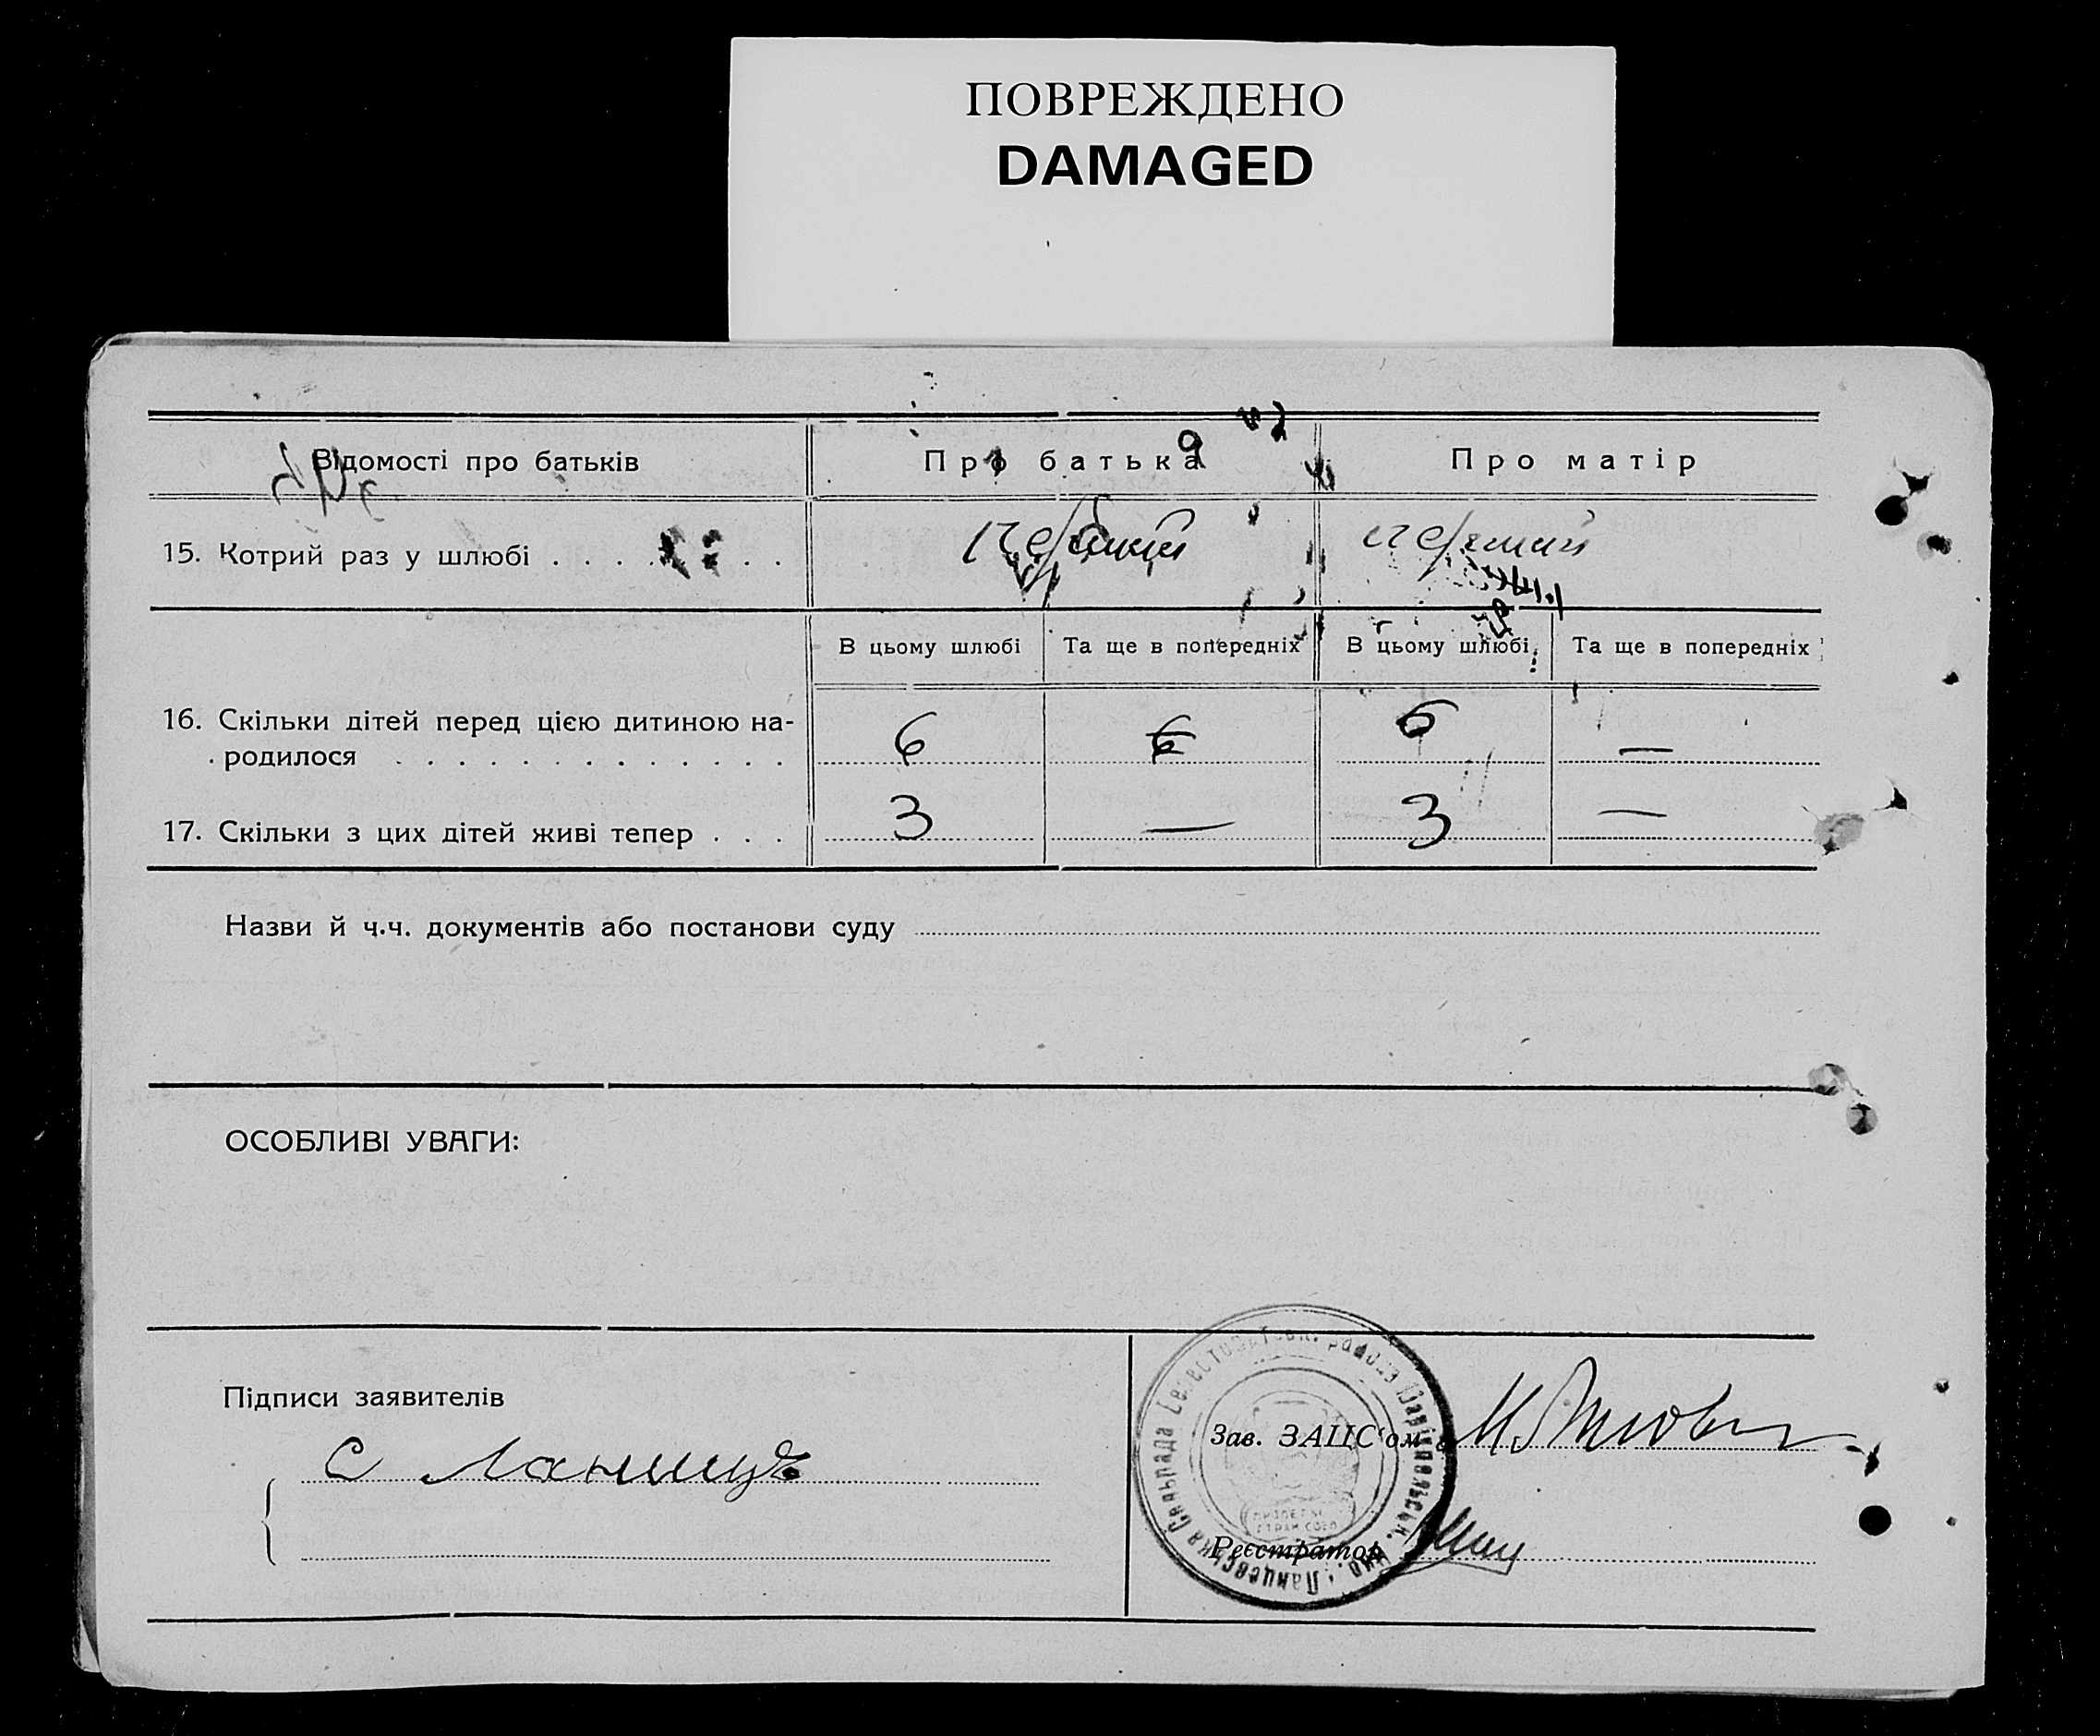 ПОВРЕЖДЕНО
DAMAGED
Відомості про батьків
Про батька
Про матір
15. Котрий раз у шлюбі . . . . . . . .
первый первый
В цьому шлюбі Та ще в попередніх В цьому шлюбі Та ще в попередніх
16. Скільки дітей перед цією дитиною на-
родилося . . . . . . . . . . . . . 6 6 6 —
17. Скільки з цих дітей живі тепер . . . 3 — 3 —
Назви й ч.ч. документів або постанови суду
ОСОБЛИВІ УВАГИ:
Підписи заявителів
Зав. ЗАЦС'ом
С
Реєстратор
Сельрада